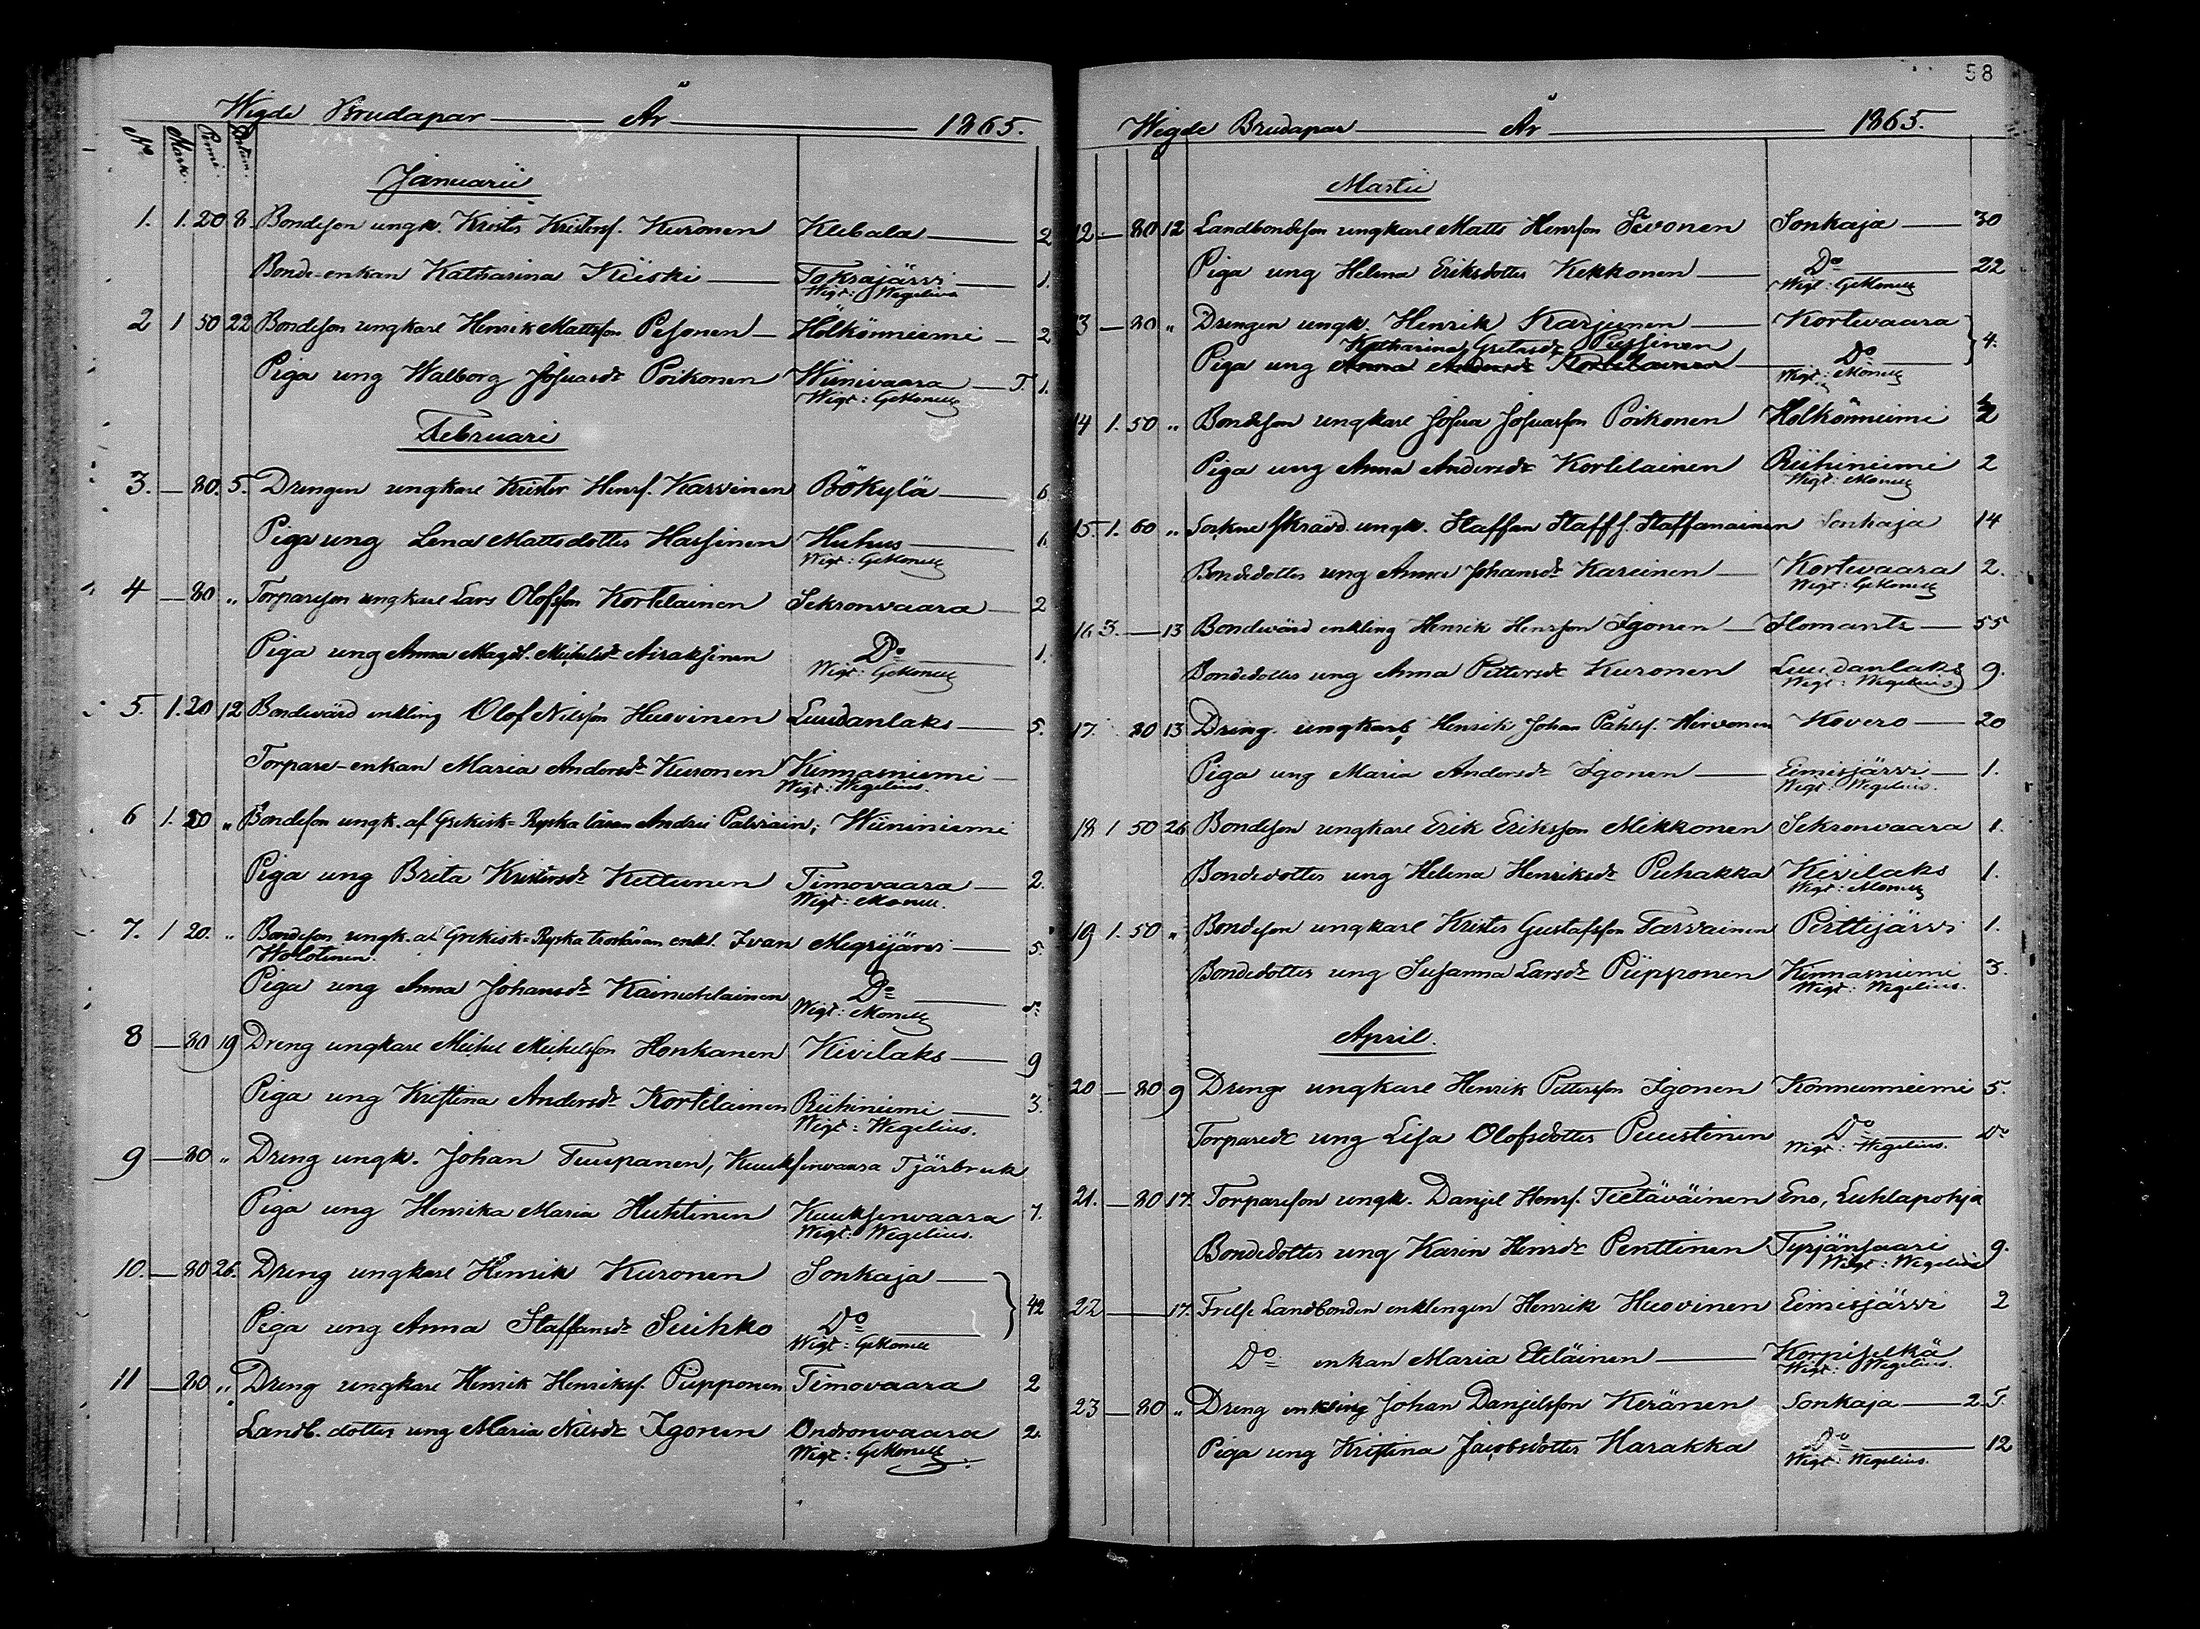 Wigde Brudapar — År — 1865.
No Mark. Penni. Datum.
Januarii
1. 1. 20 8 Bondeson ungk. Krister Kristersf. Kuronen Klebala — 2
Bonde-enkan Katharina Kiiski — Tokrajärvi — 1.
Wigt: Wegelius
2 1 50 22 Bondeson ungkarl Henrik Mattsson Pesonen — Hölkönniemi — 2
Piga ung Walborg Josuasdr Poikonen Wiinivaara — T. 1.
Wigt: GeMonell
Februari
3. — 80. 5. Drengen ungkarl Krister Henrs. Karvinen Bökylä — 6
Piga ung Lena Mattsdotter Hassinen Huhus — 6
Wigt: GeMonell
4 — 80 „ Torpareson ungkarl Lars Olofsson Kortelainen Sekronvaara — 2
Piga ung Anna Magdl. Michelsdr Airaksinen Do — 1.
Wigt: GeMonell
5. 1. 20 12 Bondevärd enkling Olof Nilsson Huovinen Luutanlaks — 5.
Torpare-enkan Maria Andersdr Kuronen Kinnasniemi —
Wigt: Wegelius.
6 1. 20 „ Bondeson ungk. af Grekisk-Ryska läran Andrei Palviain, Wiininiemi
Piga ung Brita Kristersdr Kettunen Timovaara — 2.
Wigt: Monell.
7. 1 20. „ Bondeson ungk. af Grekisk-Ryska trosläran enkl. Ivan Megrijärvi — 5.
Wolotinen.
Piga ung Anna Johansdr Kainulainen Do — Do
Wigt: Monell
8 — 80 19 Dreng ungkarl Michel Michelsson Honkanen Kivilaks — 9
Piga ung Kristina Andersdr Kortelainen Riihiniemi — 3.
Wigt: Wegelius.
9 — 80 „ Dreng ungk. Johan Tuupanen, Kuuksenvaara Tjärbruk
Piga ung Henrika Maria Huttinen Kuuksenvaara 7.
Wigt: Wegelius.
10. — 80 26. Dreng ungkarl Henrik Kuronen Sonkaja —
42
Piga ung Anna Staffansdr Suihko Do —
Wigt: GeMonell
11 — 80 „ Dreng ungkarl Henrik Henriksf. Piipponen Timovaara 2
Landb. dotter ung Maria Nilsdr Igonen Ondronvaara 2.
Wigt: GeMonell
58
Wigde Brudapar — År — 1865.
Martii
12 — 80 12 Landbondeson ungkarl Matts Henrsson Sevonen Sonkaja — 30
Piga ung Helena Eriksdotter Kekkonen — Do — 22
Wigt: GeMonell
13 — 80 „ Drengen ungk. Henrik Karjunen — Kortevaara
4.
Katharina Gretasdr Piessinen
Piga ung Anna Andersdr Kortelainen — Do —
Wigt: Monell
14 1. 50 „ Bondeson ungkarl Josua Josuasson Poikonen Holkönniemi 2
Piga ung Anna Andersdr Kortelainen Riihiniemi 2
Wigt: Monell
15. 1. 60 „ Sockne skrädd. ungk. Staffan Staffs. Staffanainen Sonkaja 14
Bondedotter ung Anna Johansdr Kareinen — Kortevaara 2.
Wigt: GeMonell
16 3. — 13 Bondevärd enkling Henrik Henrsson Igonen — Ilomants — 55
Bondedotter ung Anna Pettersdr Kuronen Luutanlaks 9.
Wigt: Wegelius.
17. 80 13 Dreng. ungkarl Henrik Johan Påhlsf. Hirvonen Kovero — 20
Piga ung Maria Andersdr Igonen — Eimisjärvi — 1.
Wigt: Wegelius.
18 1 50 26 Bondeson ungkarl Erik Eriksson Mikkonen Sekronvaara 1.
Bondedotter ung Helena Henriksdr Puhakka Kivilaks 1.
Wigt: Monell
19 1. 50 „ Bondeson ungkarl Krister Gustafsson Tarvainen Perttijärvi 1.
Bondedotter ung Susanna Larsdr Piipponen Kinnasniemi 3.
Wigt: Wegelius.
April.
20 — 80 9 Dreng ungkarl Henrik Pettersson Igonen Konnunniemi 5.
Torparedr ung Lisa Olofsdotter Puustinen Do — Do
Wigt: Wegelius.
21. — 80 17. Torpareson ungk. Danjel Henrs. Tietäväinen Eno, Luhtapohja
Bondedotter ung Karin Henrsdr Penttinen Tyrjänsaari 9.
Wigt: Wegelius
22 — 17. Frelse Landbonden enklingen Henrik Huovinen Eimisjärvi 2
Do enkan Maria Eteläinen — Korpiselkä
Wigt: Wegelius.
23 — 80 „ Dreng enkling Johan Danjelsson Keränen Sonkaja — 2. T.
Piga ung Kristina Jacobsdotter Harakka Do — 12
Wigt: Wegelius.